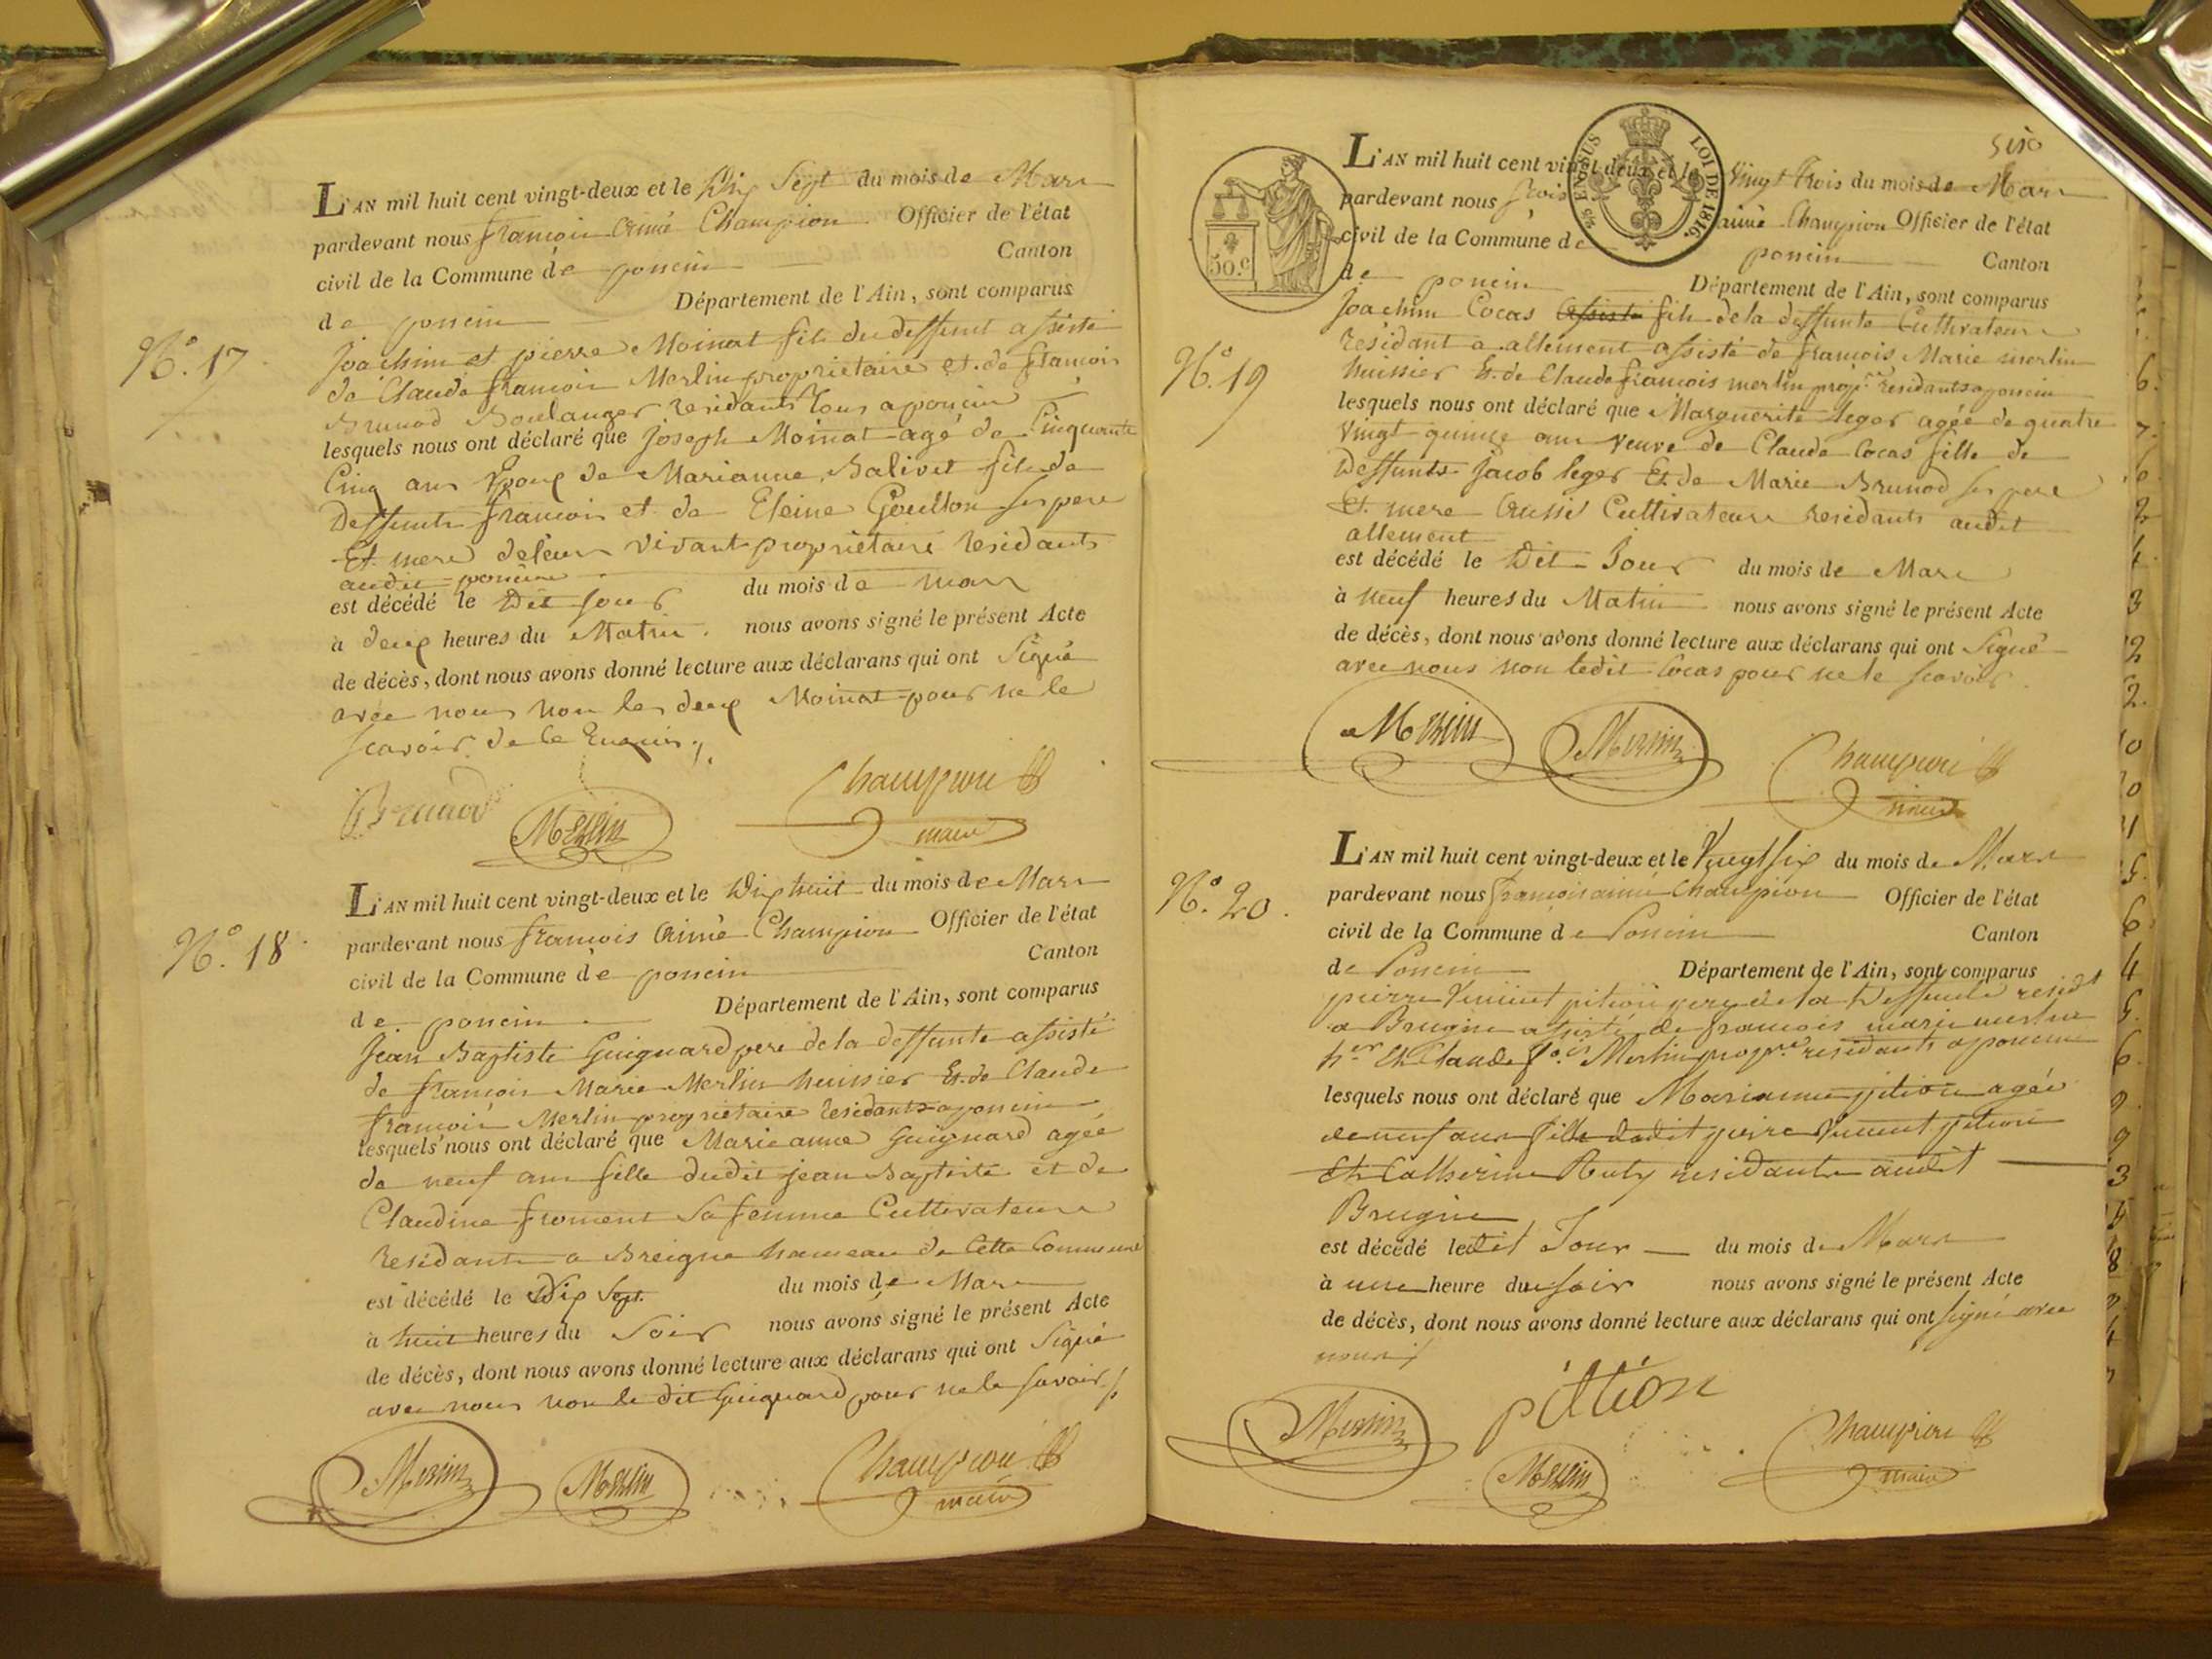 N.o 17
L'AN mil huit cent vingt-deux et le Dix Sept du mois de Mars
pardevant nous françois Aimé Champion Officier de l'état
civil de la Commune de poncin Canton
de poncin Département de l'Ain, sont comparus
Joachim et pierre Moinat fils du deffunt assisté
de Claude françois Merlin propriétaire et de françois
Brunod Boulanger residants tous a poncin
lesquels nous ont déclaré que Joseph Moinat agé de Cinquante
Cinq ans Epoux de Marianne Balivet fils de
Deffunts françois et de Eleine Goulton ses pere
Et mere de leur vivant propriétaire residants
audit poncin
est décédé le Dit jour du mois de mars
à deux heures du Matin. nous avons signé le présent Acte
de décès, dont nous avons donné lecture aux déclarans qui ont Signé
avec nous non les deux Moinat pour ne le
scavoir de ce Enquis
Brunod Merlin Champion
maire
N.o 18
L'AN mil huit cent vingt-deux et le Dix huit du mois de Mars
pardevant nous françois Aimé Champion Officier de l'état
civil de la Commune de poncin Canton
de poncin Département de l'Ain, sont comparus
Jean Baptiste Guignard pere de la deffunte assisté
de françois Marie Merlin huissier Et de Claude
françois Merlin propriétaire residants a poncin
lesquels nous ont déclaré que Marieanne Guignard agée
de neuf ans fille dudit jean Baptiste et de
Claudine froment Sa femme Cultivateurs
residants a Breigne hameau de Cette Commune
est décédé le Dix Sept du mois de Mars
à huit heures du Soir nous avons signé le présent Acte
de décès, dont nous avons donné lecture aux déclarans qui ont Signé
avec nous non le dit Guignard pour ne le savoir
Merlin Merlin Champion
maire
50.c
EN SUS LOI DE 1816.
N.o 19
L'AN mil huit cent vingt-deux et le Vingt Trois du mois de Mars
pardevant nous aimé Champion Officier de l'état
civil de la Commune de poncin Canton
de poncin Département de l'Ain, sont comparus
Joachim Cocas assisté fils de la deffunte Cultivateur
residant a allement assisté de françois Marie merlin
huissier Et de Claude françois merlin prop.re residants a poncin
lesquels nous ont déclaré que Marguerite Leger agée de quatre
vingt quinze ans veuve de Claude Cocas fille de
Deffunts Jacob leger Et de Marie Brunod ses pere
Et mere aussi Cultivateurs residants audit
allement
est décédé le Dit Jour du mois de Mars
à neuf heures du Matin nous avons signé le présent Acte
de décès, dont nous avons donné lecture aux déclarans qui ont Signé
avec nous non ledit Cocas pour ne le scavoir
Merlin Merlin Champion
maire
N.o 20.
L'AN mil huit cent vingt-deux et le Vingt six du mois de Mars
pardevant nous françois aimé Champion Officier de l'état
civil de la Commune de Poncin Canton
de Poncin Département de l'Ain, sont comparus
pierre Vincent pition pere de la Deffunte resid.t
a Breigne assisté de françois marie merlin
h.er Et Claude f.ois Merlin prop.re residants a poncin
lesquels nous ont déclaré que Marianne pition agée
de neuf ans fille dudit pierre Vincent pition
Et Catherine Ruty residants audit
Breigne
est décédé ledit Jour du mois de Mars
à une heure du soir nous avons signé le présent Acte
de décès, dont nous avons donné lecture aux déclarans qui ont signé avec
nous
Merlin pittion
Merlin Champion
maire